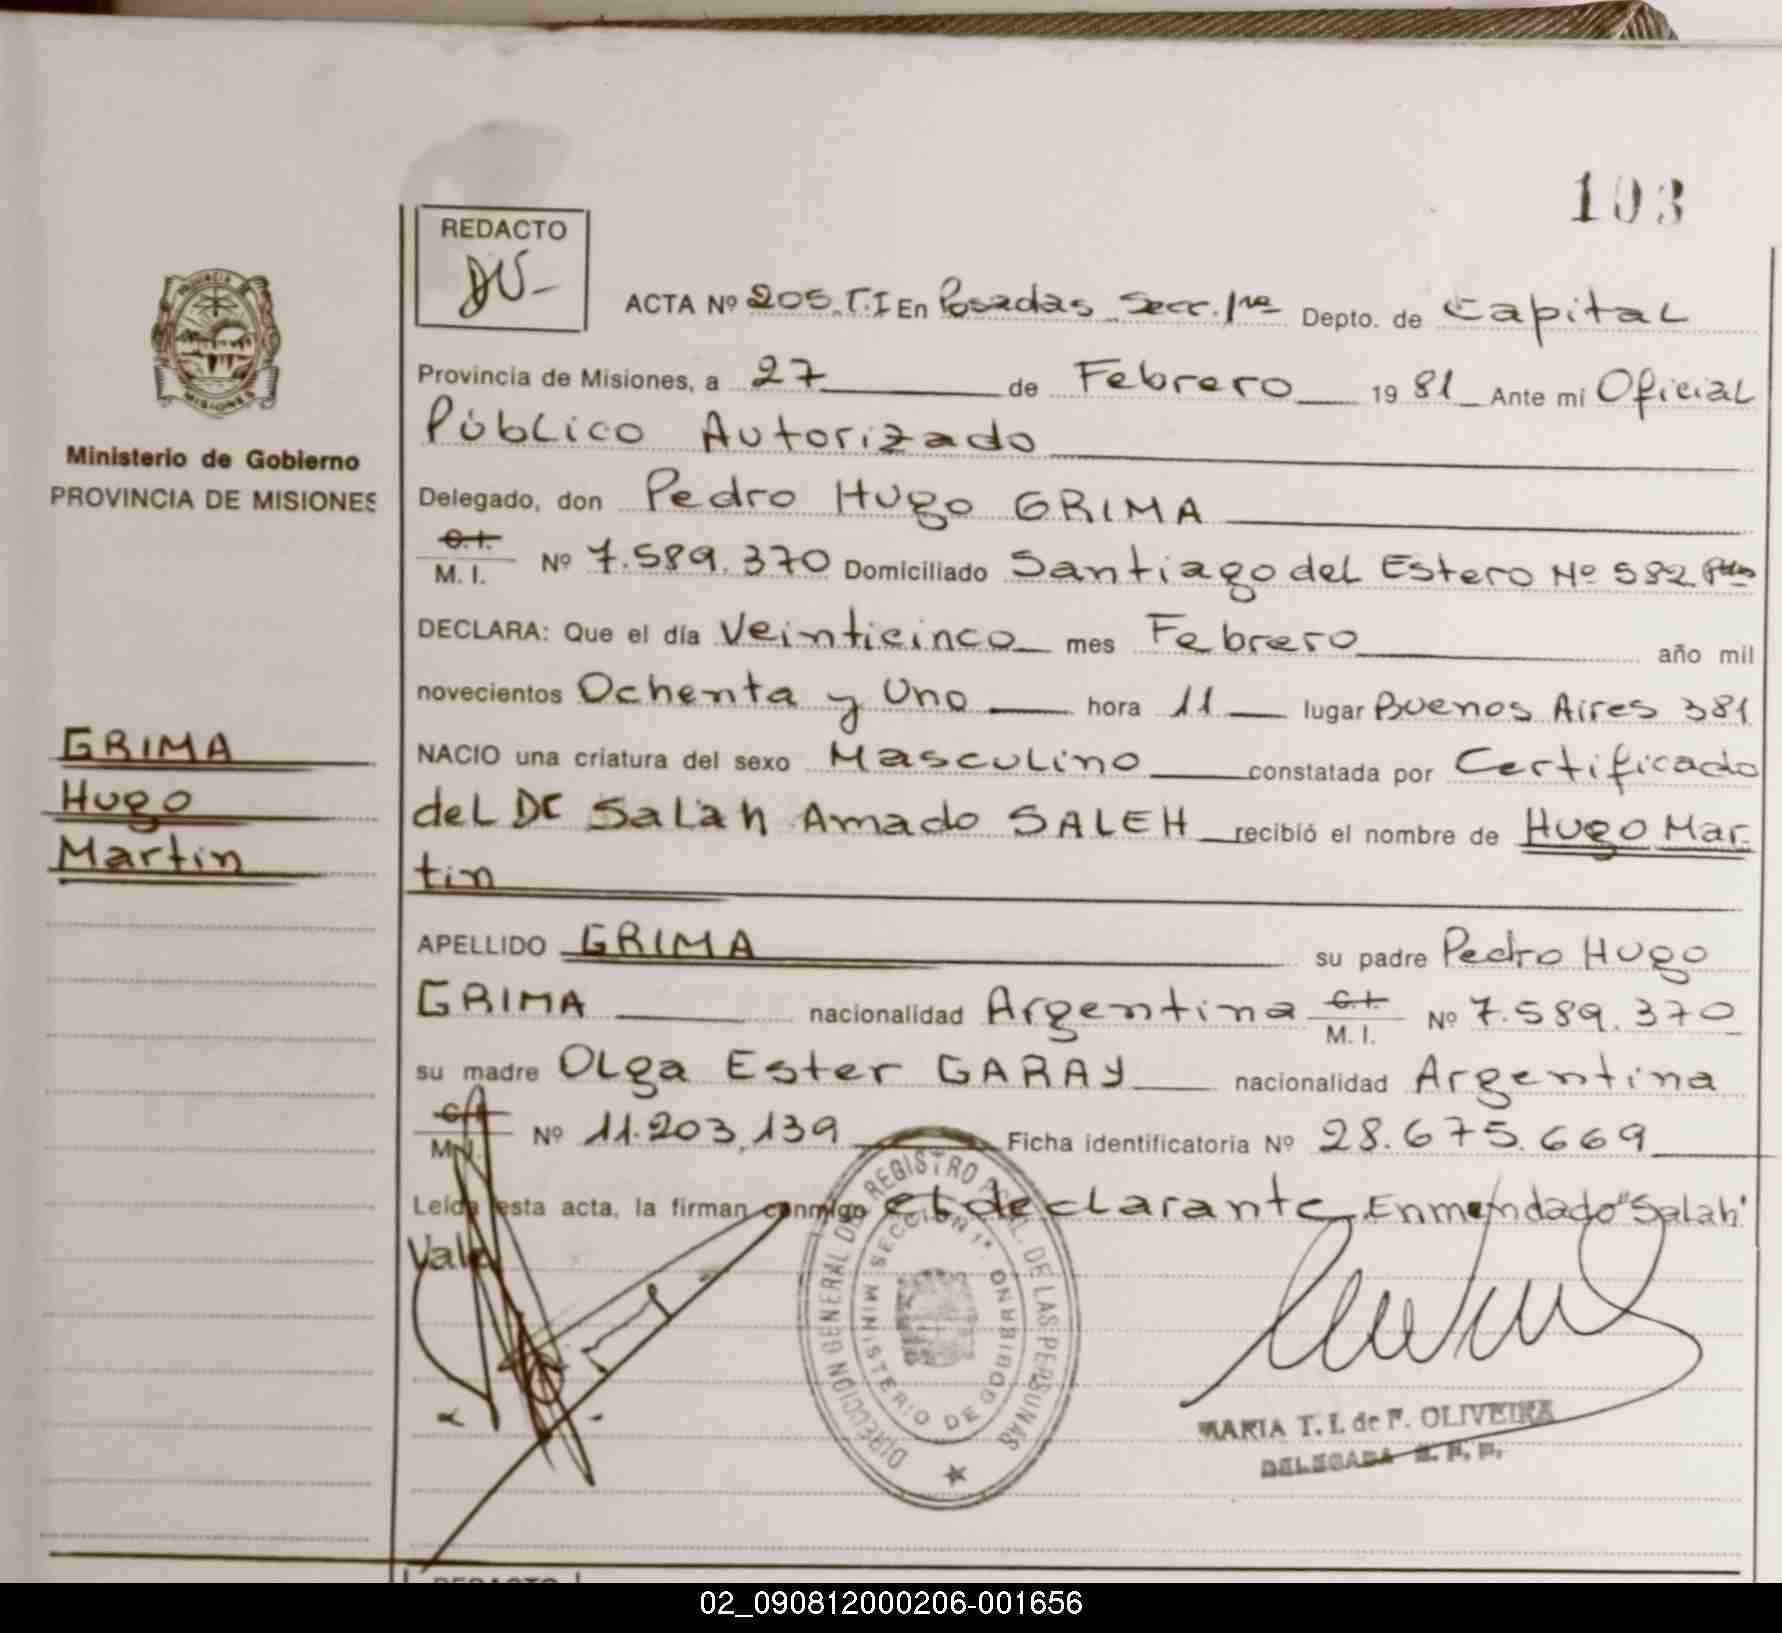 103
REDACTO
ACTA Nº 205.T.I En Posadas Secc. 1ra Depto. de Capital
PROVINCIA DE
MISIONES
Provincia de Misiones, a 27 de Febrero 19 81 Ante mi Oficial
Público Autorizado
Ministerio de Gobierno
PROVINCIA DE MISIONES
Delegado, don Pedro Hugo GRIMA
C.I.
M. I. Nº 7.589.370 Domiciliado Santiago del Estero Nº 582 Pdas
DECLARA: Que el día Veinticinco mes Febrero año mil
novecientos Ochenta y Uno hora 11 lugar Buenos Aires 381
GRIMA
Hugo
Martin
NACIO una criatura del sexo Masculino constatada por Certificado
del Dr Salah Amado SALEH recibió el nombre de Hugo Mar-
tin
APELLIDO GRIMA su padre Pedro Hugo
GRIMA nacionalidad Argentina C.I. M. I. Nº 7.589.370
su madre Olga Ester GARAY nacionalidad Argentina
C.I.
M. I. Nº 11.203,139 Ficha identificatoria Nº 28.675.669
Leída esta acta, la firman conmigo el declarante. Enmendado "Salah"
Vale
DIRECCION GENERAL DE REGISTRO DE LAS PERSONAS
SECCION 1ª
MINISTERIO DE GOBIERNO
MARIA T. I. de F. OLIVEIRA
DELEGADA R. P. P.
REDACTO
02_090812000206-001656